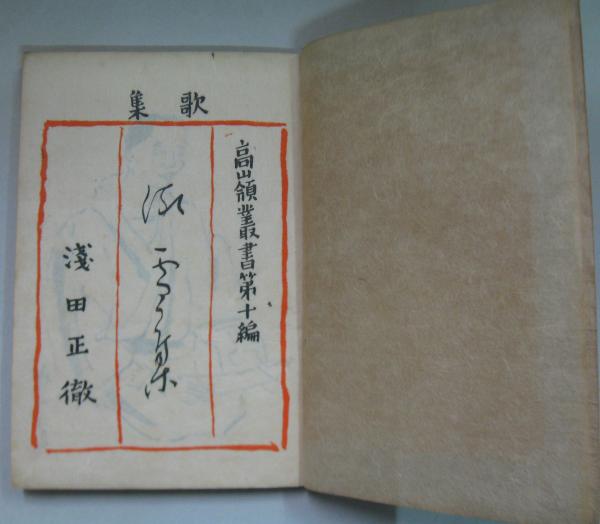 歌集
高山領叢書第十編
淺田正徹